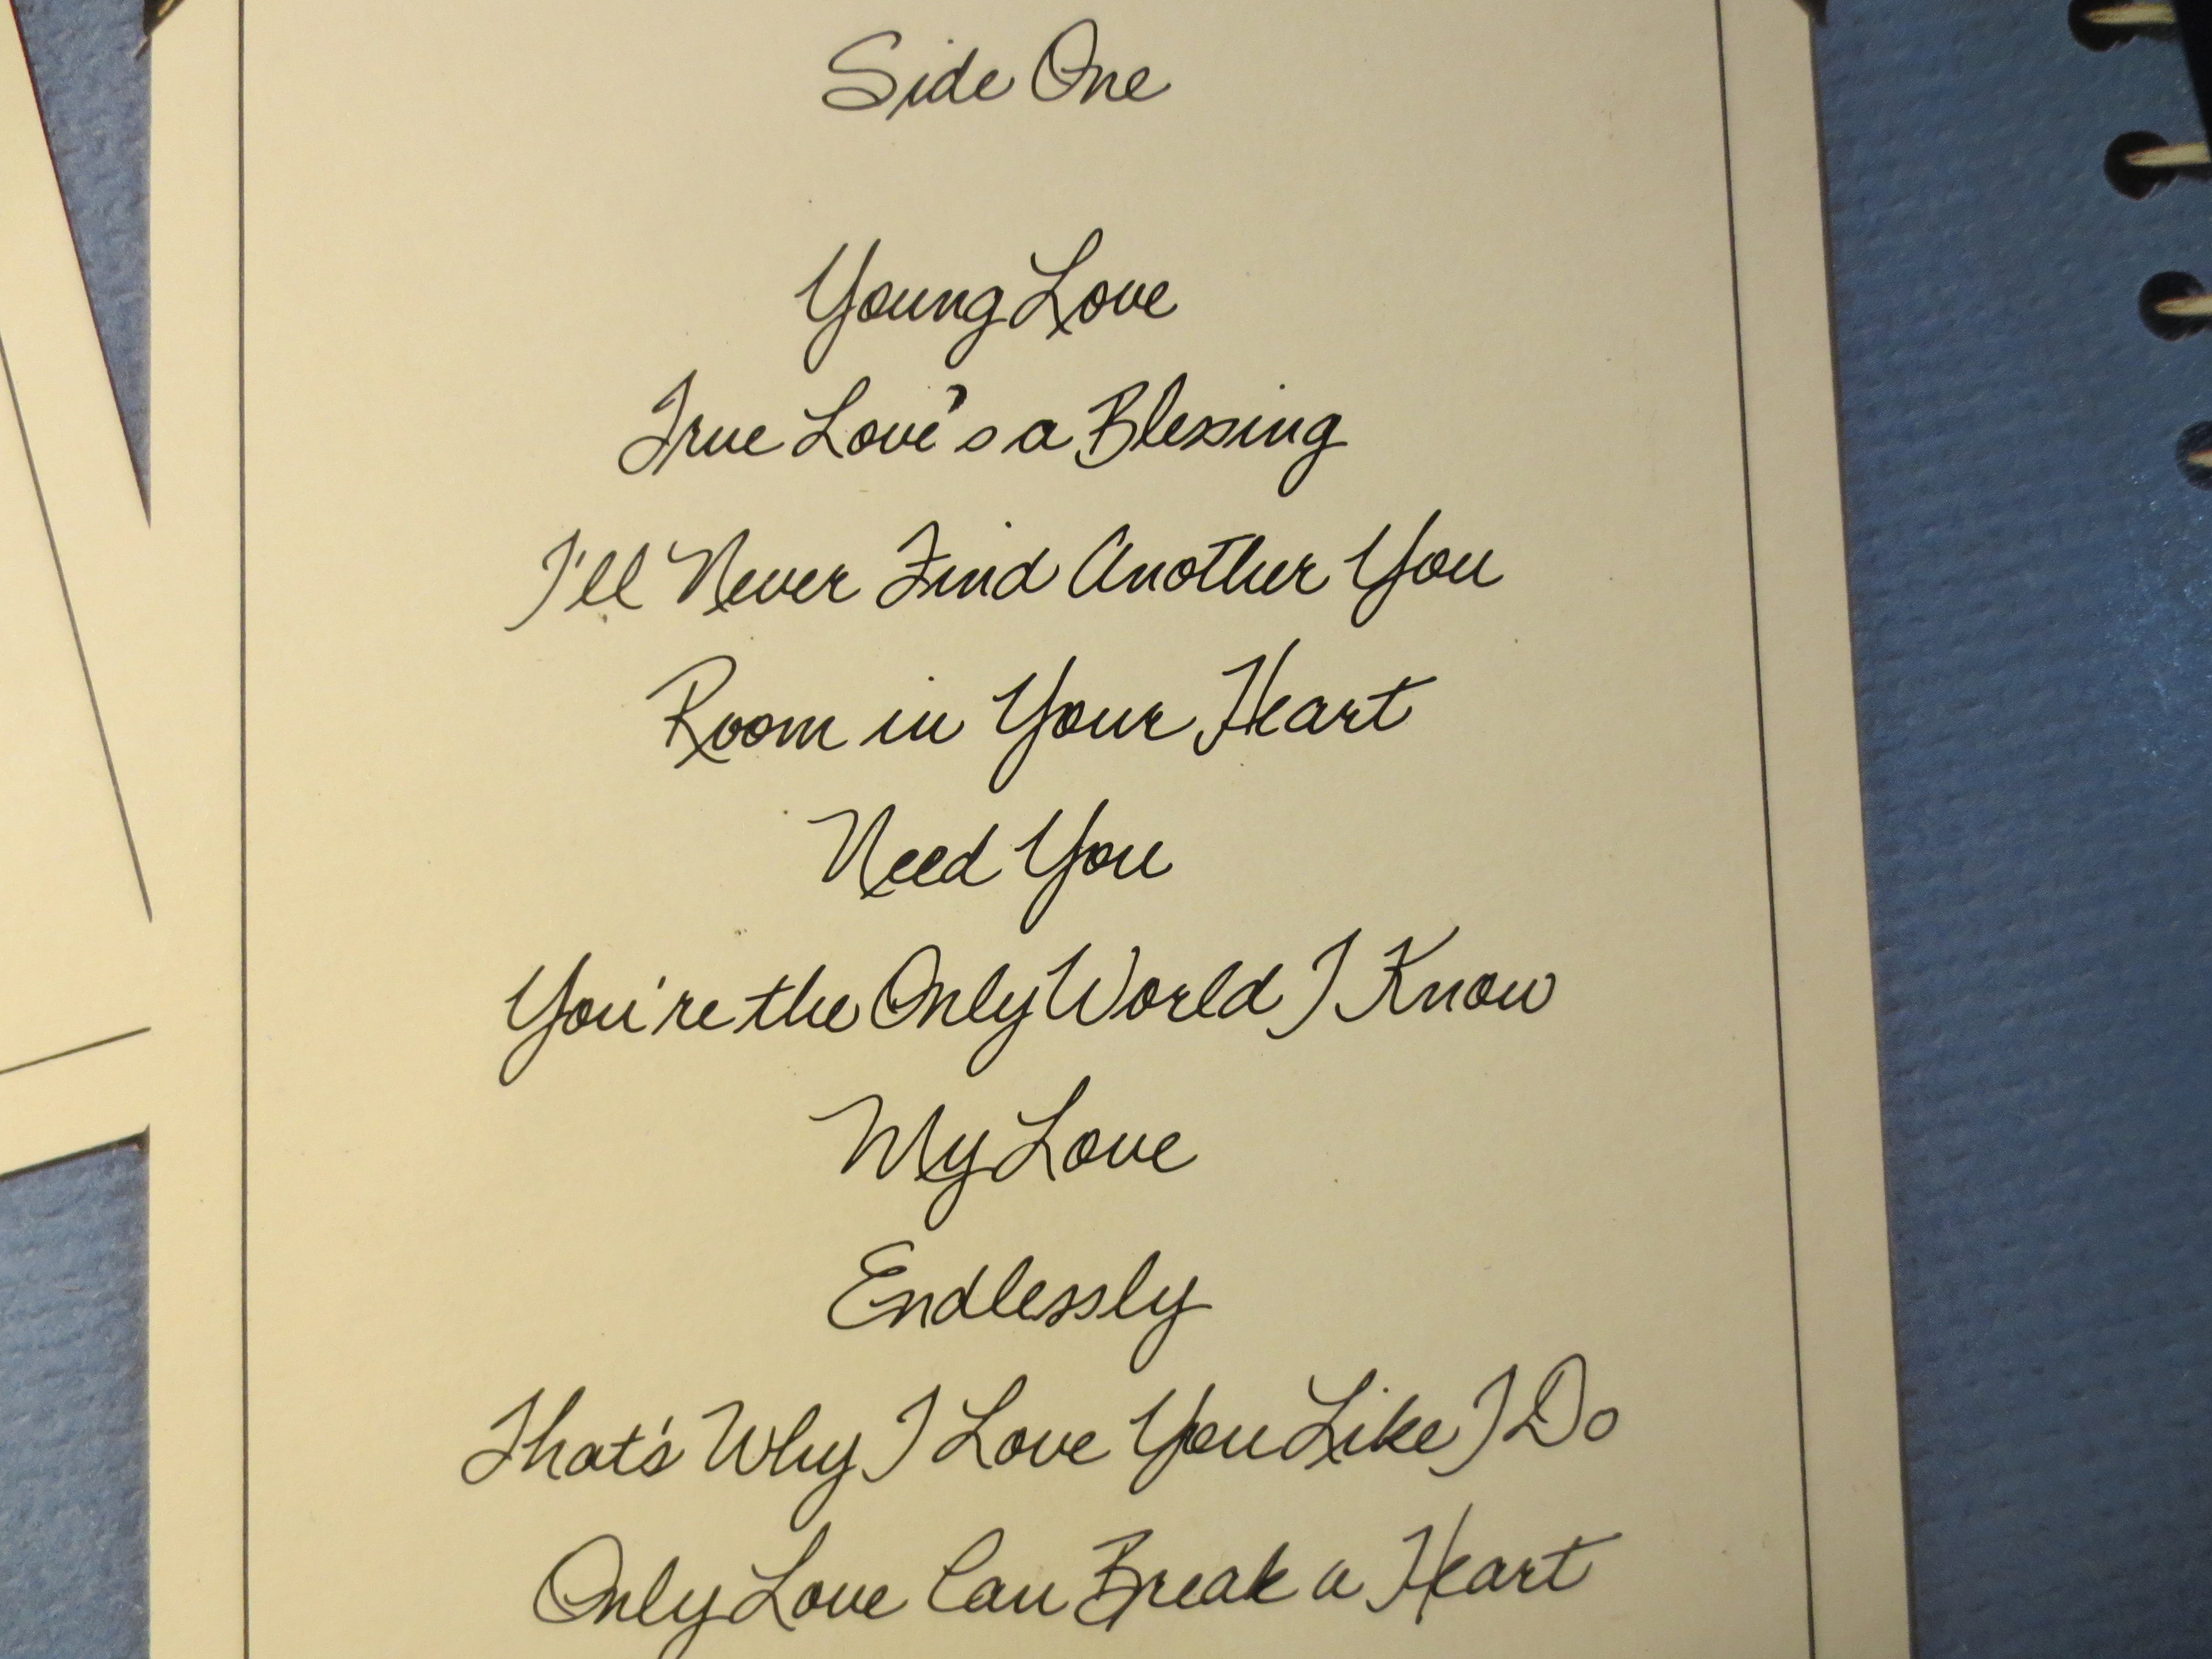 Side One
Young Love
True Love's a Blessing
I'll Never Find Another You
Room in Your Heart
Need You
You're the Only World I Know
My Love
Endlessly
That's Why I Love You Like I Do
Only Love Can Break a Heart